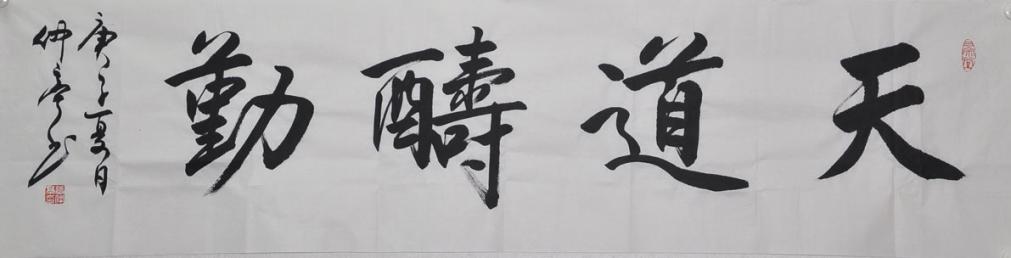 天道醻勤
庚子夏日
仲亭书